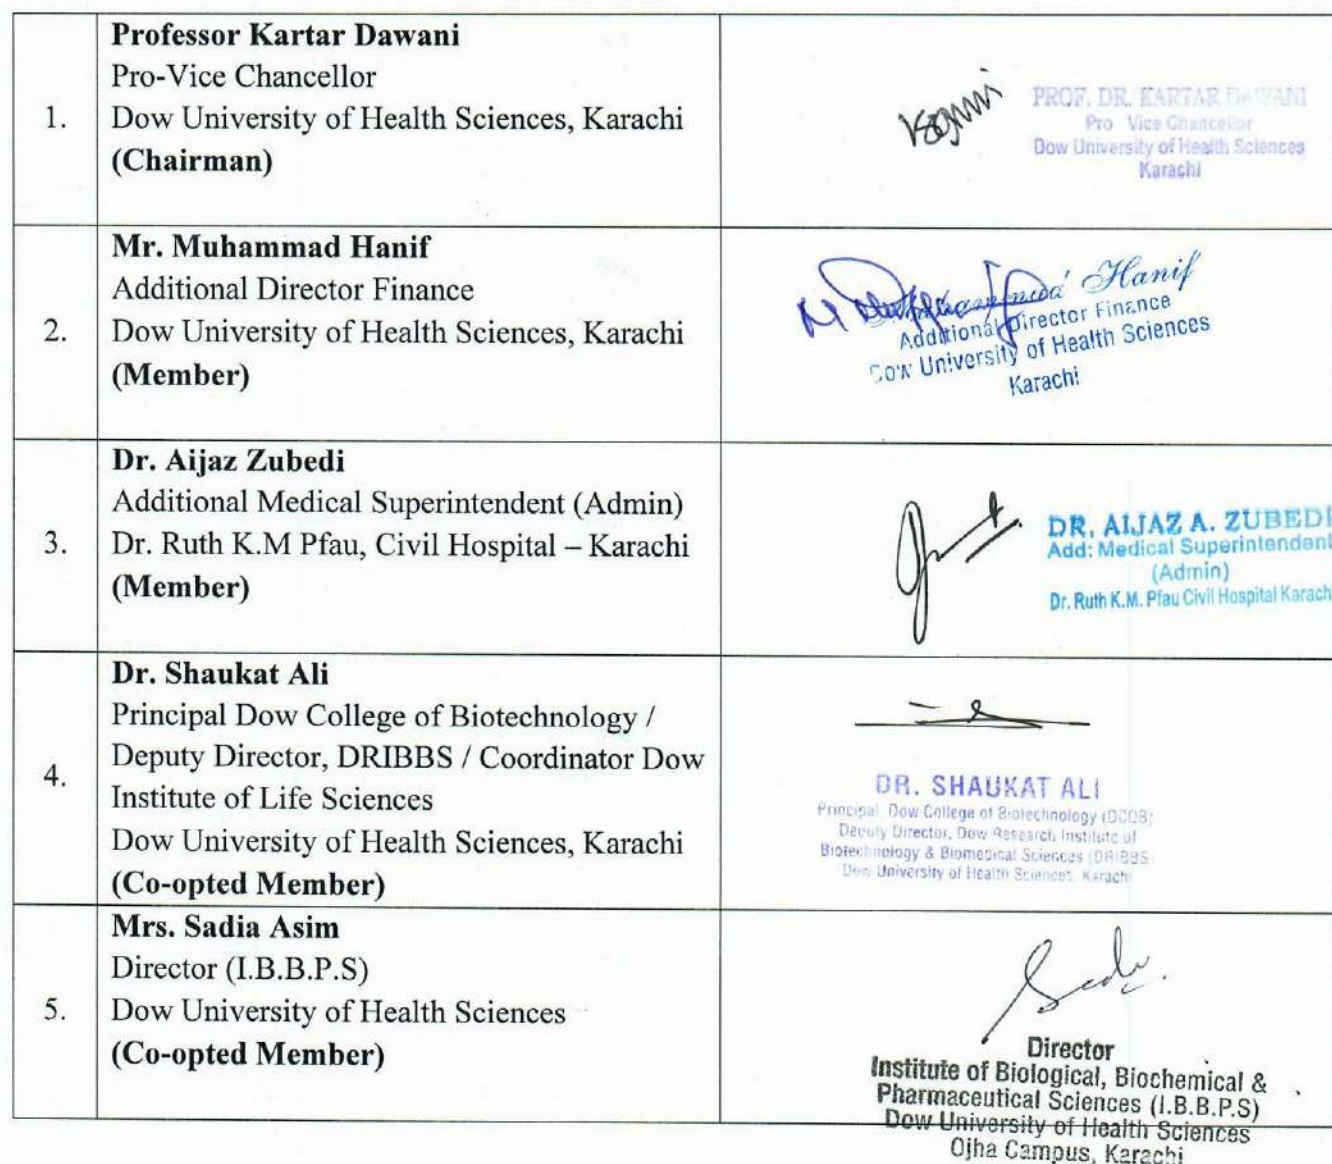 1.
Professor Kartar Dawani
Pro-Vice Chancellor
Dow University of Health Sciences, Karachi
(Chairman)
PROF. DR. KARTAR DAWANI
Pro Vice Chancellor
Dow University of Health Sciences
Karachi
2.
Mr. Muhammad Hanif
Additional Director Finance
Dow University of Health Sciences, Karachi
(Member)
Hanif
Additional Director Finance
Dow University of Health Sciences
Karachi
3.
Dr. Aijaz Zubedi
Additional Medical Superintendent (Admin)
Dr. Ruth K.M Pfau, Civil Hospital – Karachi
(Member)
DR. AIJAZ A. ZUBEDI
Add: Medical Superintendent
(Admin)
Dr. Ruth K.M. Pfau Civil Hospital Karach
4.
Dr. Shaukat Ali
Principal Dow College of Biotechnology /
Deputy Director, DRIBBS / Coordinator Dow
Institute of Life Sciences
Dow University of Health Sciences, Karachi
(Co-opted Member)
DR. SHAUKAT ALI
Principal, Dow College of Biotechnology (DCOB)
Deputy Director, Dow Research Institute of
Biotechnology & Biomedical Sciences (DRIBBS
Dow University of Health Sciences, Karachi
5.
Mrs. Sadia Asim
Director (I.B.B.P.S)
Dow University of Health Sciences
(Co-opted Member)
Director
Institute of Biological, Biochemical &
Pharmaceutical Sciences (I.B.B.P.S)
Dow University of Health Sciences
Ojha Campus, Karachi